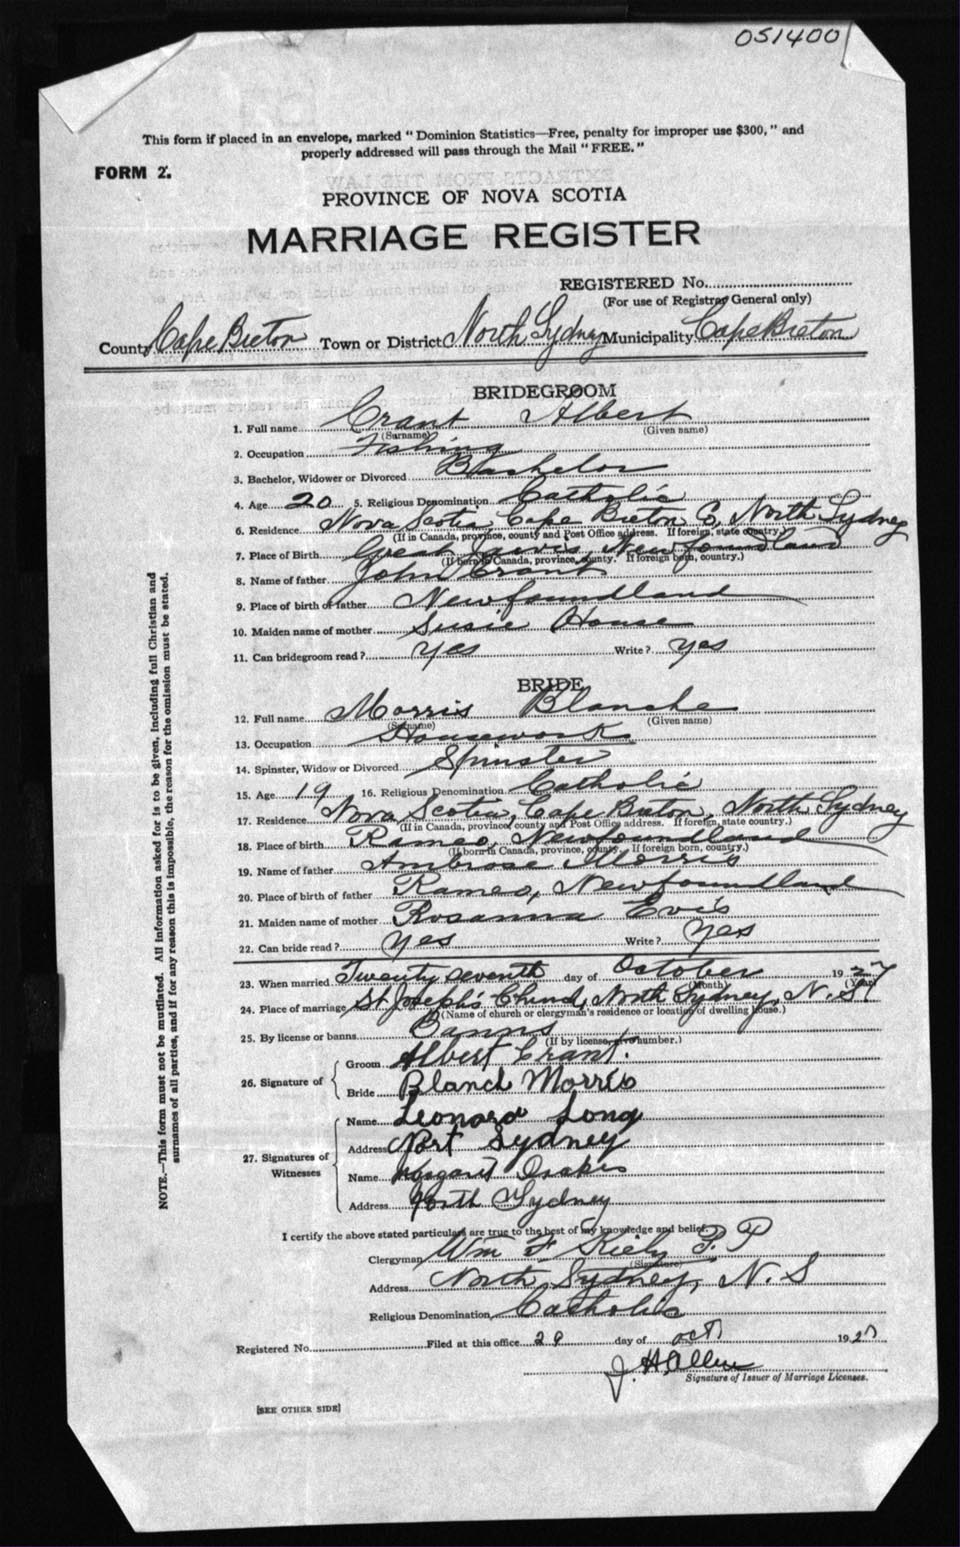 051400
This form if placed in an envelope, marked "Dominion Statistics—Free, penalty for improper use $300," and
properly addressed will pass through the Mail "FREE."
FORM 2.
PROVINCE OF NOVA SCOTIA
MARRIAGE REGISTER
REGISTERED No.
(For use of Registrar General only)
County Cape Breton Town or District North Sydney Municipality Cape Breton
BRIDEGROOM
1. Full name Grant Albert
(Surname) (Given name)
2. Occupation Fishing
3. Bachelor, Widower or Divorced Bachelor
4. Age 20 5. Religious Denomination Catholic
6. Residence Nova Scotia, Cape Breton C, North Sydney
(If in Canada, province, county and Post Office address. If foreign, state country.)
7. Place of Birth Great Jarvis, Newfoundland
(If born in Canada, province, county. If foreign born, country.)
8. Name of father John Grant
9. Place of birth of father Newfoundland
10. Maiden name of mother Susie House
11. Can bridegroom read? Yes Write? Yes
BRIDE
12. Full name Morris Blanche
(Surname) (Given name)
13. Occupation Housework
14. Spinster, Widow or Divorced Spinster
15. Age 19 16. Religious Denomination Catholic
17. Residence Nova Scotia, Cape Breton, North Sydney
(If in Canada, province, county and Post Office address. If foreign, state country.)
18. Place of birth Rameo, Newfoundland
(If born in Canada, province, county. If foreign born, country.)
19. Name of father Ambrose Morris
20. Place of birth of father Rameo, Newfoundland
21. Maiden name of mother Rosanna Evis
22. Can bride read? Yes Write? Yes
23. When married Twenty seventh day of October 1927
(Month) (Year)
24. Place of marriage St Joseph's Church, North Sydney, N.S
(Name of church or clergyman's residence or location of dwelling house.)
25. By license or banns Banns
(If by license, give number.)
26. Signature of
Groom Albert Grant.
Bride Blanch Morris
27. Signatures of Witnesses
Name Leonard Long
Address Nort Sydney
Name Margaret
Address North Sydney
I certify the above stated particulars are true to the best of my knowledge and belief.
Clergyman Wm F Kiely P.P
(Signature)
Address North Sydney, N.S
Religious Denomination Catholic
Registered No. Filed at this office 29 day of Oct 1927
J. H. Allen
Signature of Issuer of Marriage Licenses.
[SEE OTHER SIDE]
NOTE.—This form must not be mutilated. All information asked for is to be given, including full Christian and
surnames of all parties, and if for any reason this is impossible, the reason for the omission must be stated.